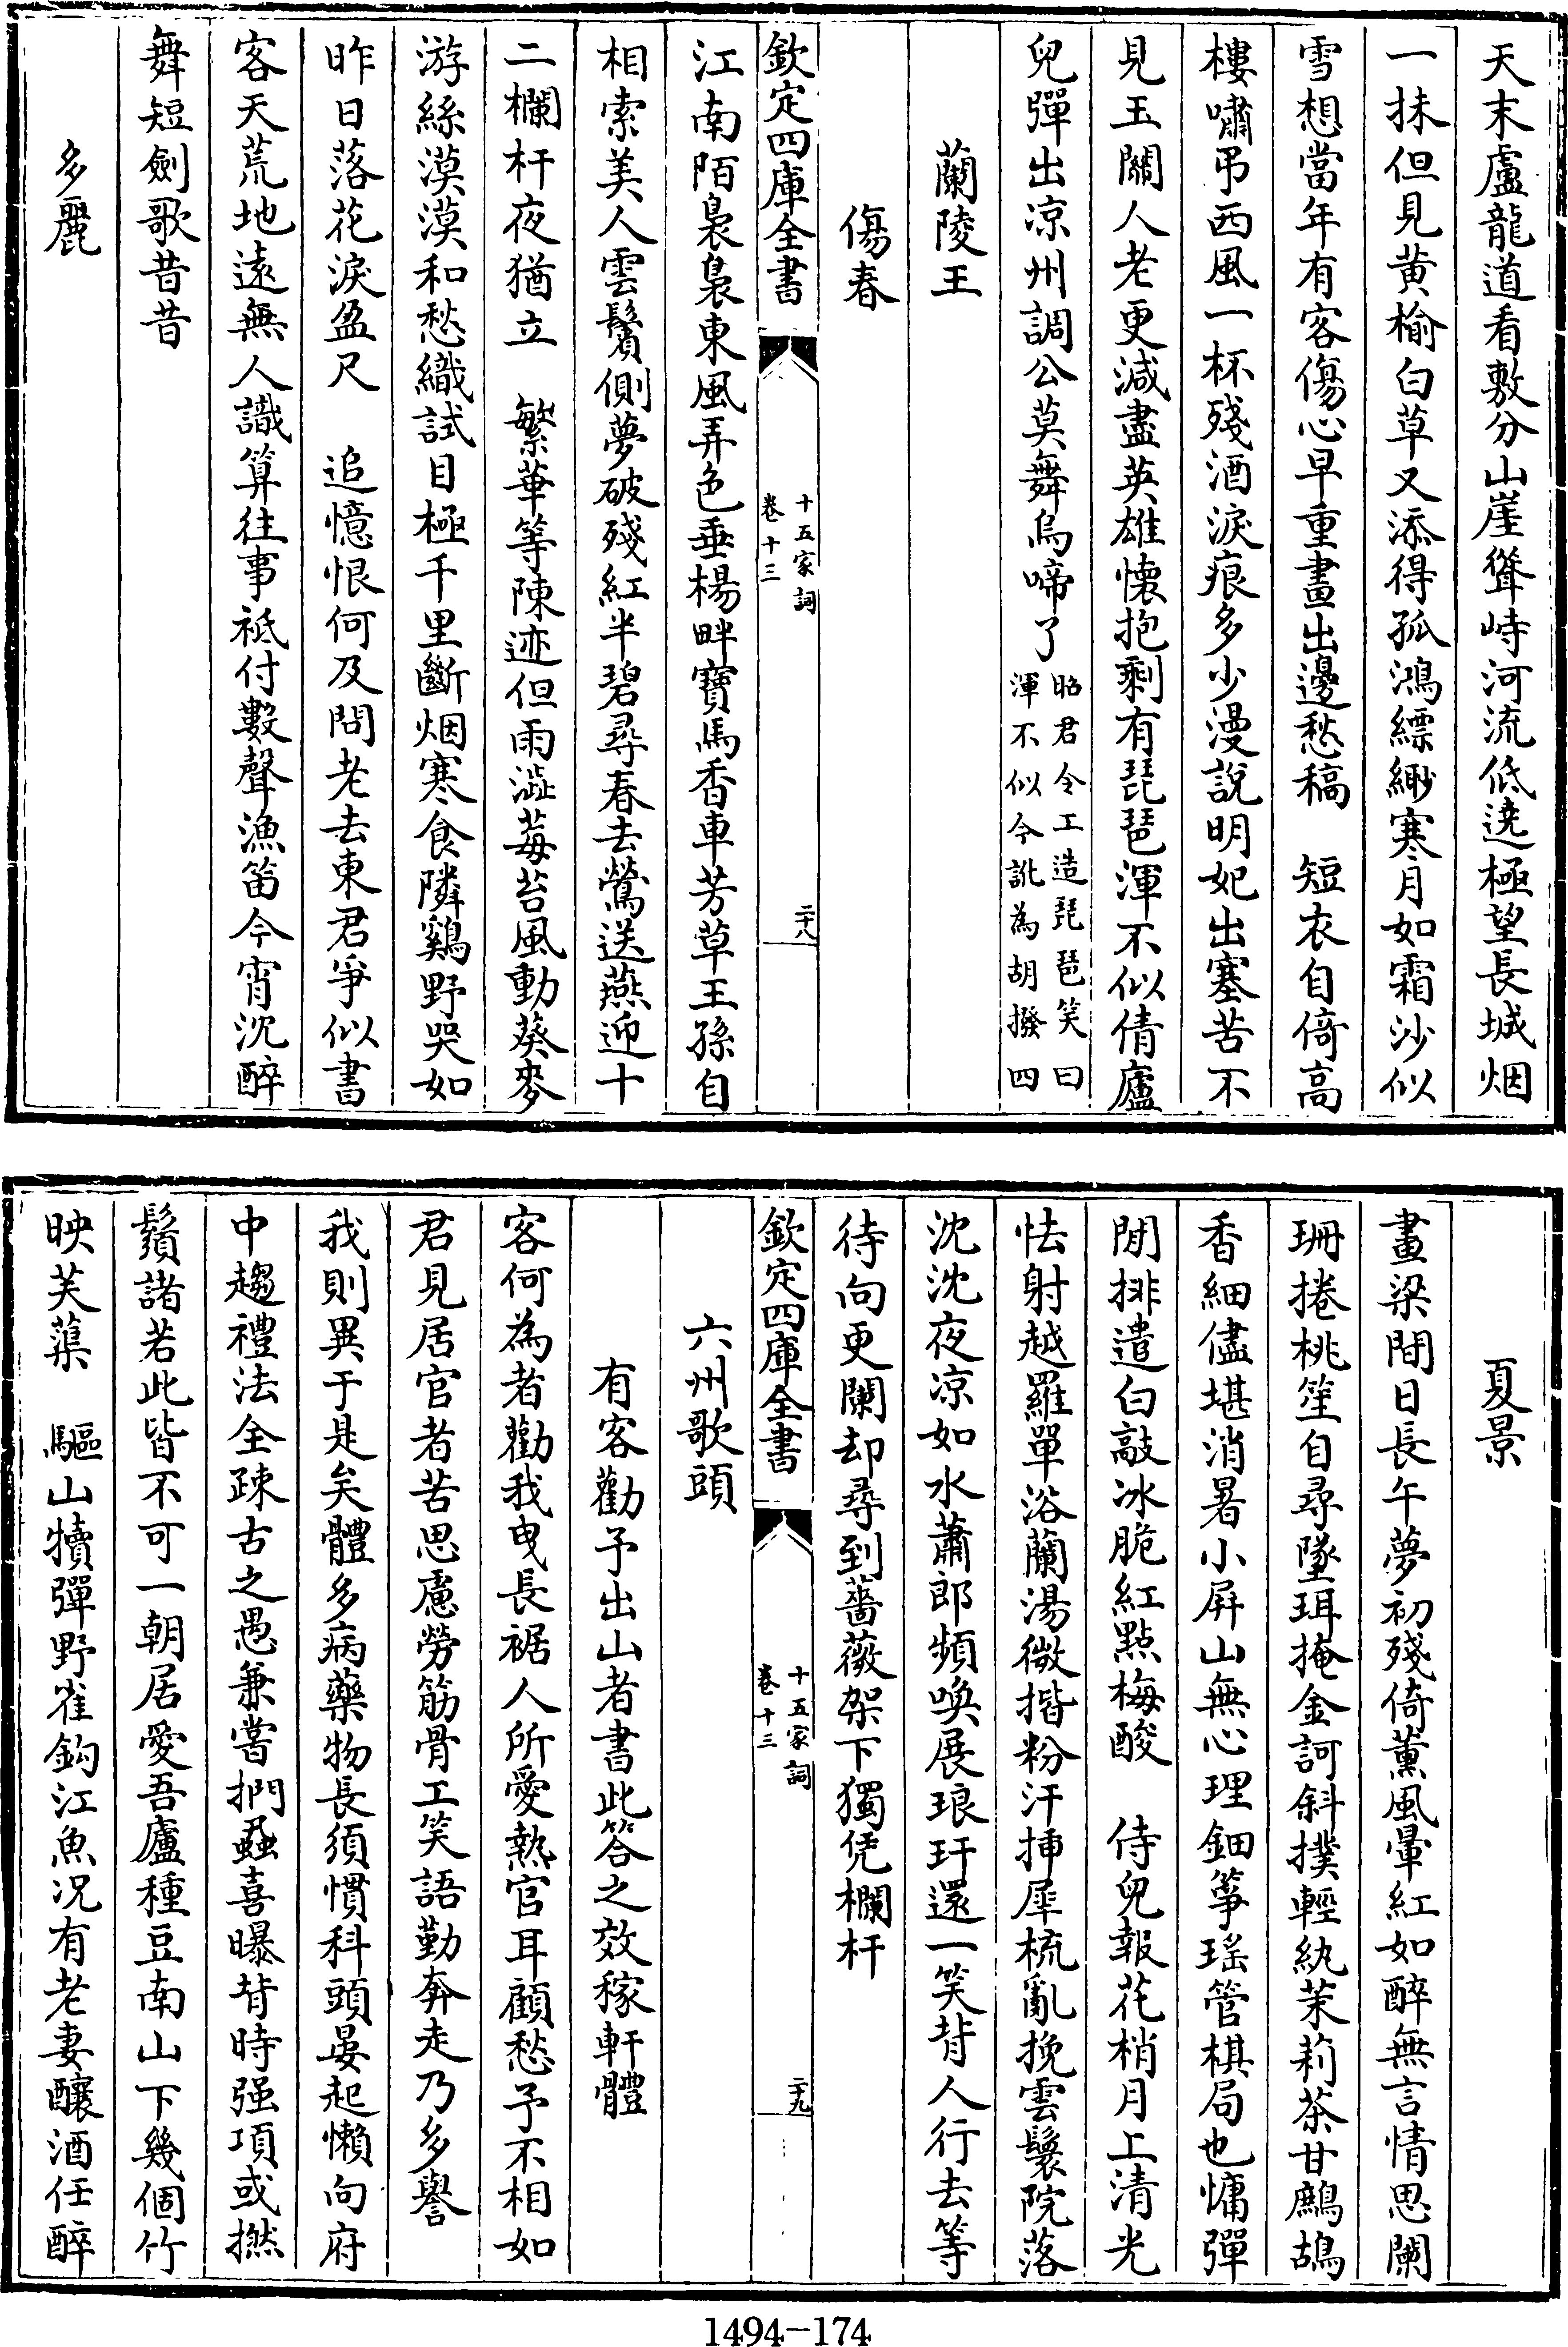 天末盧龍道看敷分山崖聳峙河流低遶極望長城烟
一抹但見黄榆白草又添得孤鴻縹緲寒月如霜沙似
雪想當年有客傷心早重畫出邊愁稿　短衣自倚高
樓嘯弔西風一杯殘酒淚痕多少漫說明妃出塞苦不
見玉關人老更減盡英雄懷抱剩有琵琶渾不似倩廬
兒彈出涼州調公莫舞烏啼了昭君令工造琵琶笑曰渾不似今訛為胡撥四
蘭陵王
傷春
欽定四庫全書
十五家詞
卷十三
二十八
江南陌裊裊東風弄色垂楊畔寶馬香車芳草王孫自
相索美人雲鬢側夢破殘紅半碧尋春去鶯送燕迎十
二欄杆夜猶立　繁華等陳迹但雨澁莓苔風動葵麥
游絲漠漠和愁織試目極千里斷烟寒食隣鷄野哭如
昨日落花淚盈尺　追憶恨何及問老去東君爭似書
客天荒地遠無人識算往事祇付數聲漁笛今宵沈醉
舞短劍歌昔昔
多麗
夏景
畫梁間日長午夢初殘倚薰風暈紅如醉無言情思闌
珊捲桃笙自尋墜珥掩金訶斜撲輕紈茉莉茶甘鷓鴣
香細儘堪消暑小屏山無心理鈿箏瑤管棋局也慵彈
閒排遣白敲冰脆紅點梅酸　侍兒報花梢月上清光
怯射越羅單浴蘭湯微揩粉汗揷犀梳亂挽雲鬟院落
沈沈夜凉如水蕭郎頻喚展琅玕還一笑背人行去等
待向更闌却尋到薔薇架下獨凭欄杆
欽定四庫全書
十五家詞
卷十三
二十九
六州歌頭
有客勸予出山者書此答之效稼軒體
客何為者勸我曳長裾人所愛熱官耳顧愁予不相如
君見居官者苦思慮勞筋骨工笑語勤奔走乃多譽
我則異于是矣體多病藥物長須慣科頭晏起懶向府
中趨禮法全疎古之愚兼嘗捫蝨喜曝背時强項或撚
鬚諸若此皆不可一朝居愛吾廬種豆南山下幾個竹
映芙蕖　驅山犢彈野雀鈎江魚况有老妻釀酒任醉
1494-174